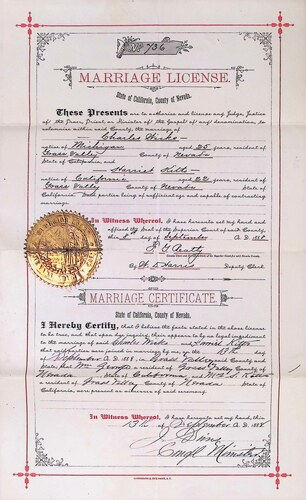 No 736
MARRIAGE LICENSE.
State of California, County of Nevada.
These Presents are to authorize and license any Judge, Justice
of the Peace, Priest, or Minister of the Gospel of any denomination, to
solemnize within said County, the marriage of
Charles Hicks
native of Michigan aged 25 years, resident of
Grass Valley County of Nevada
State of California, and
Harriet Kitto
native of California aged 22 years, resident of
Grass Valley County of Nevada State of
California, said parties being of sufficient age and capable of contracting
marriage.
In Witness Whereof, I have hereunto set my hand and
affixed the Seal of the Superior Court of said County,
this 8 day of September A. D. 188
Beatty
By Harris Deputy Clerk.
MARRIAGE CERTIFICATE
State of California, County of Nevada.
I Hereby Certify, that I believe the facts stated in the above license
to be true, and that upon due inquiry there appears to be no legal impediment
to the marriage of said Charles Hicks and Harriet Kitto
that said parties were joined in marriage by me on the 13th day
of September A. D. 188 in Grass Valley said
State, that Wm George a resident of Grass Valley County of
Nevada State of California, and
a resident of Grass Valley County of Nevada State of
California, were present as witnesses of said ceremony.
In Witness Whereof, I have hereunto set my hand, this
13th of September A. D. 188
J. Sims
Congl Minister